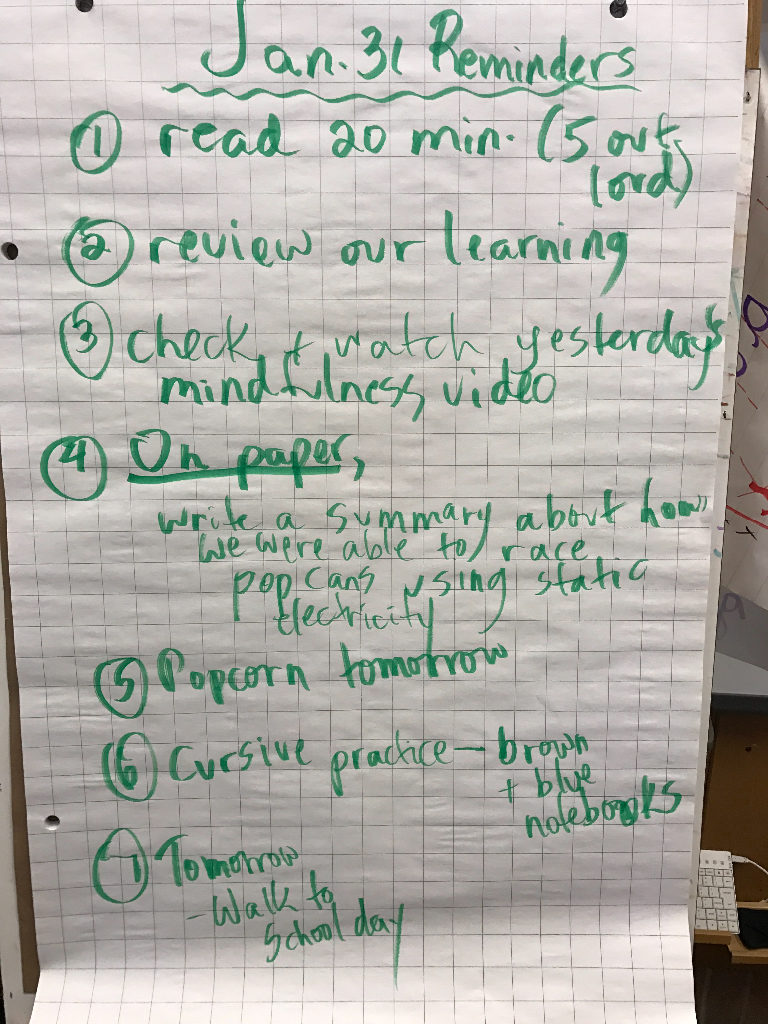 Jan. 31 Reminders
① read 20 min. (5 out
loud)
② review our learning
③ check + watch yesterday's
mindfulness video
④ On paper,
write a summary about how
we were able to race
pop cans using static
electricity
⑤ Popcorn tomorrow
⑥ Cursive practice - brown
+ blue
notebooks
⑦ Tomorrow
- Walk to
School day